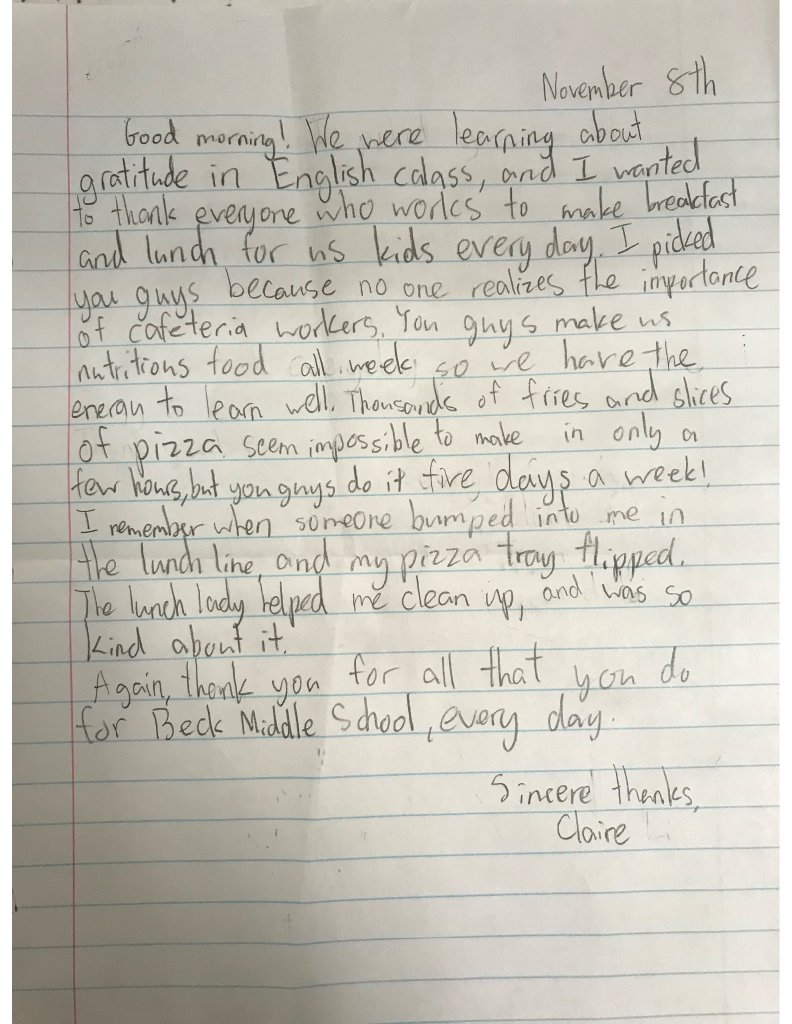 November 8th
Good morning! We were learning about
gratitude in English calass, and I wanted
to thank everyone who works to make breakfast
and lunch for us kids every day. I picked
you guys because no one realizes the importance
of cafeteria workers. You guys make us
nutritions food all week so we have the
energy to learn well. Thousands of fries and slices
of pizza seem impossible to make in only a
few hours, but you guys do it five days a week!
I remember when someone bumped into me in
the lunch line, and my pizza tray flipped.
The lunch lady helped me clean up, and was so
kind about it.
Again, thank you for all that you do
for Beck Middle School, every day.
Sincere thanks,
Claire